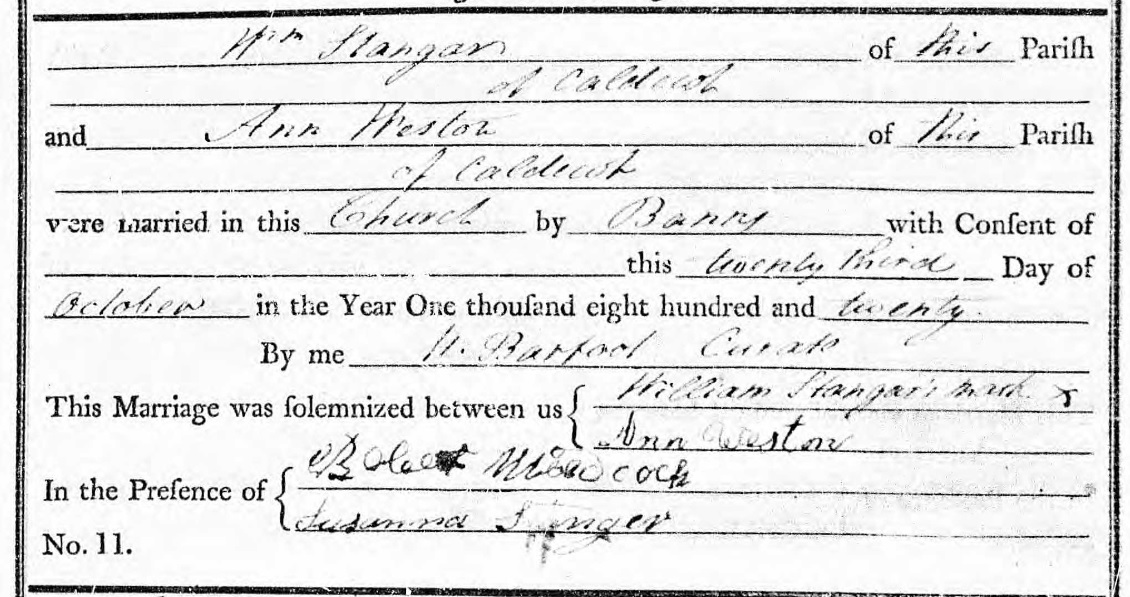 Wm Stangar of this Pariſh
of Caldecot
and Ann Weston of this Pariſh
of Caldecot
were married in this Church by Banns with Conſent of
this twenty third Day of
October in the Year One thouſand eight hundred and twenty.
By me W. Barfoot Curate
This Marriage was ſolemnized between us { William Stangar's mark x
Ann Weston
In the Preſence of { Robert
Susanna Stanger
No. 11.